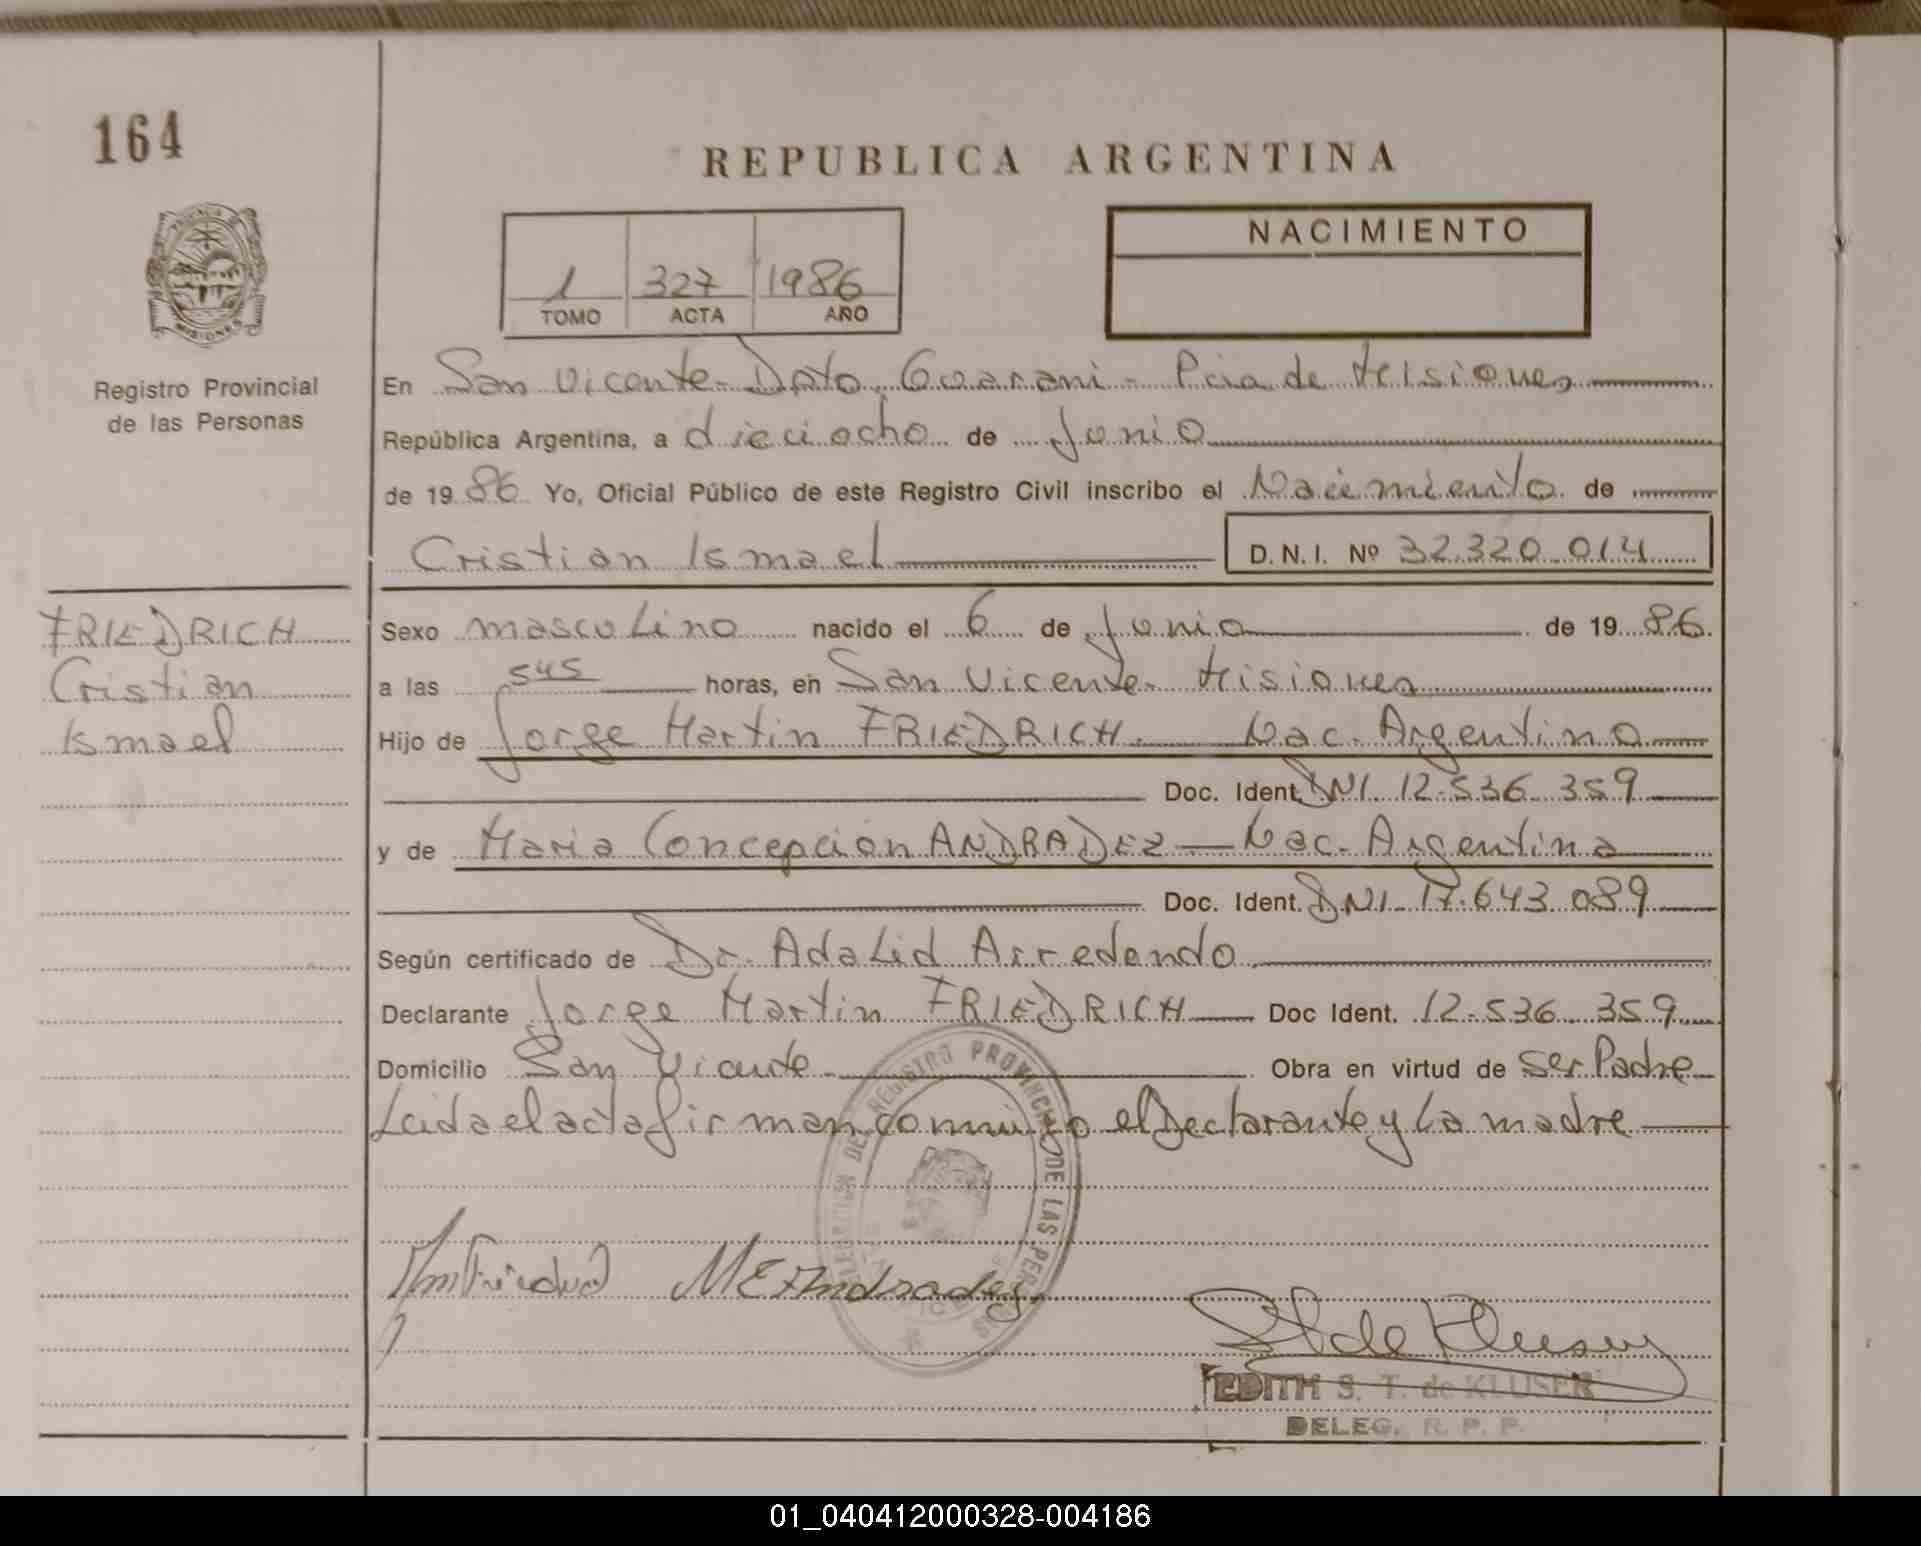 164
REPUBLICA ARGENTINA
MISIONES
Registro Provincial
de las Personas
1 327 1986
TOMO ACTA AÑO
NACIMIENTO
En San Vicente - Dpto. Guarani - Pcia de Misiones
República Argentina, a dieciocho de Junio
de 19 86 Yo, Oficial Público de este Registro Civil inscribo el Nacimiento de
Cristian Ismael D.N.I. Nº 32.320.014
FRIEDRICH
Cristian
Ismael
Sexo masculino nacido el 6 de Junio de 19 86.
a las 545 horas, en San Vicente - Misiones
Hijo de Jorge Martin FRIEDRICH - Nac. Argentino
Doc. Ident. DNI. 12.536.359
y de Maria Concepción ANDRADEZ - Nac. Argentina
Doc. Ident. DNI. 17.643.089
Según certificado de Dr. Adalid Arredondo
Declarante Jorge Martin FRIEDRICH Doc Ident. 12.536.359
Domicilio San Vicente - Obra en virtud de ser Padre
Leida el acta firman conmigo el Declarante y la madre
DELEGACION DEL REGISTRO PROVINCIAL DE LAS PERSONAS
EDITH S. T. de KLUSER
DELEG. R. P. P.
01_040412000328-004186